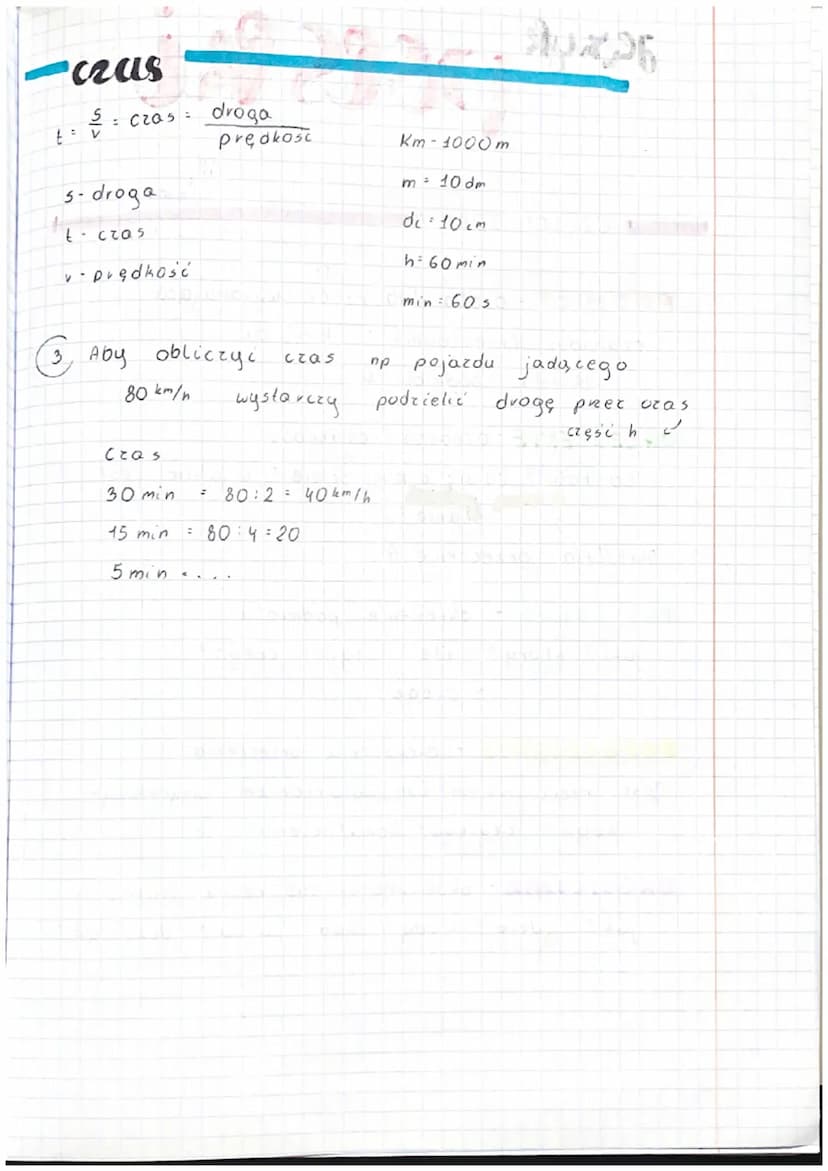 czas
t = s/v = czas = droga/prędkość
s - droga
t - czas
v - prędkość
Km - 1000m
m = 10 dm
dc = 10 cm
h = 60 min
min = 60 s
3, Aby obliczyć czas np pojazdu jadącego
80 km/h wystarczy podzielić drogę przez czas
część h
Czas
30 min = 80:2 = 40 km/h
15 min = 80:4 = 20
5 min = ....